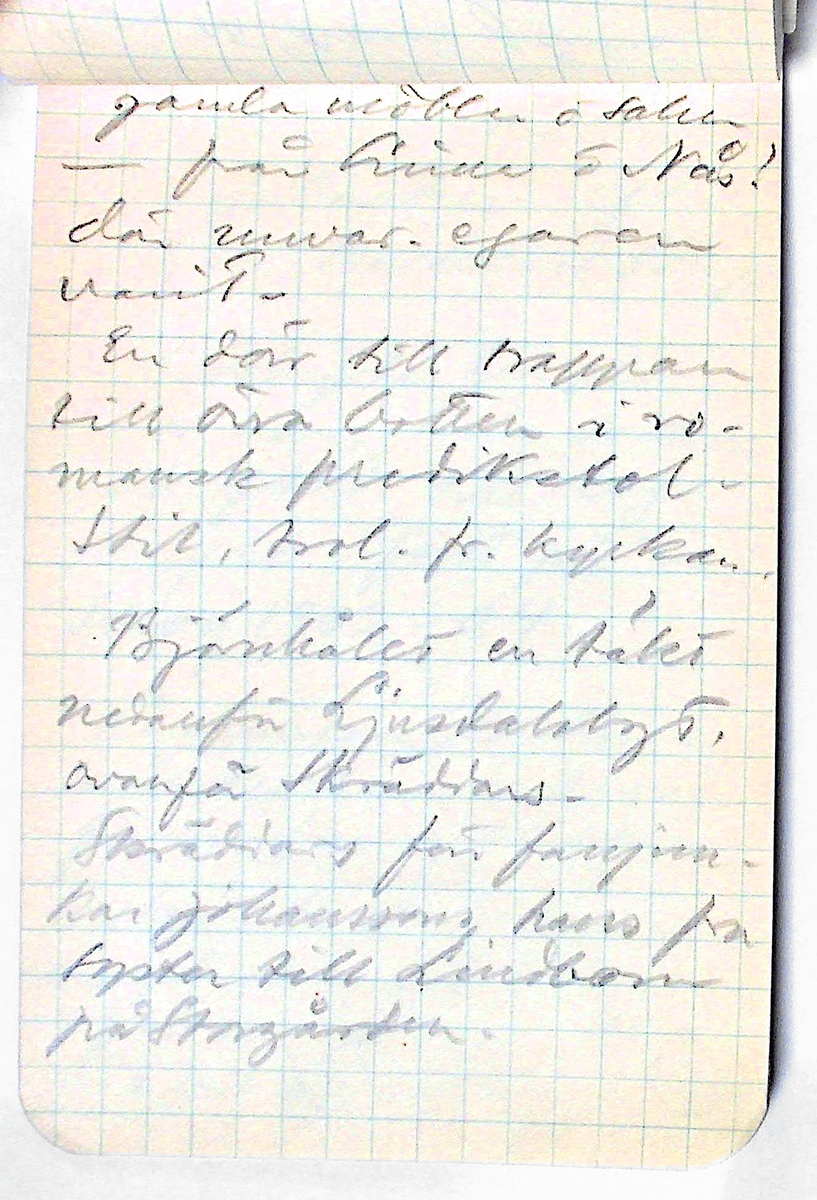 gamla möbler o saker
— från Grime o Nås!
där nuvar. egaren
varit.
En dörr till trappan
till övra botten i ro-
mansk predikstol-
stil, trol. fr. kyrkan.
Björnhålet en täkt
nedanför Ljusdalsbygt,
ovanför Skräddars.
Skräddars för fanjun-
kar Johanssons, hans fru
syster till Lindbom
på Storgården.